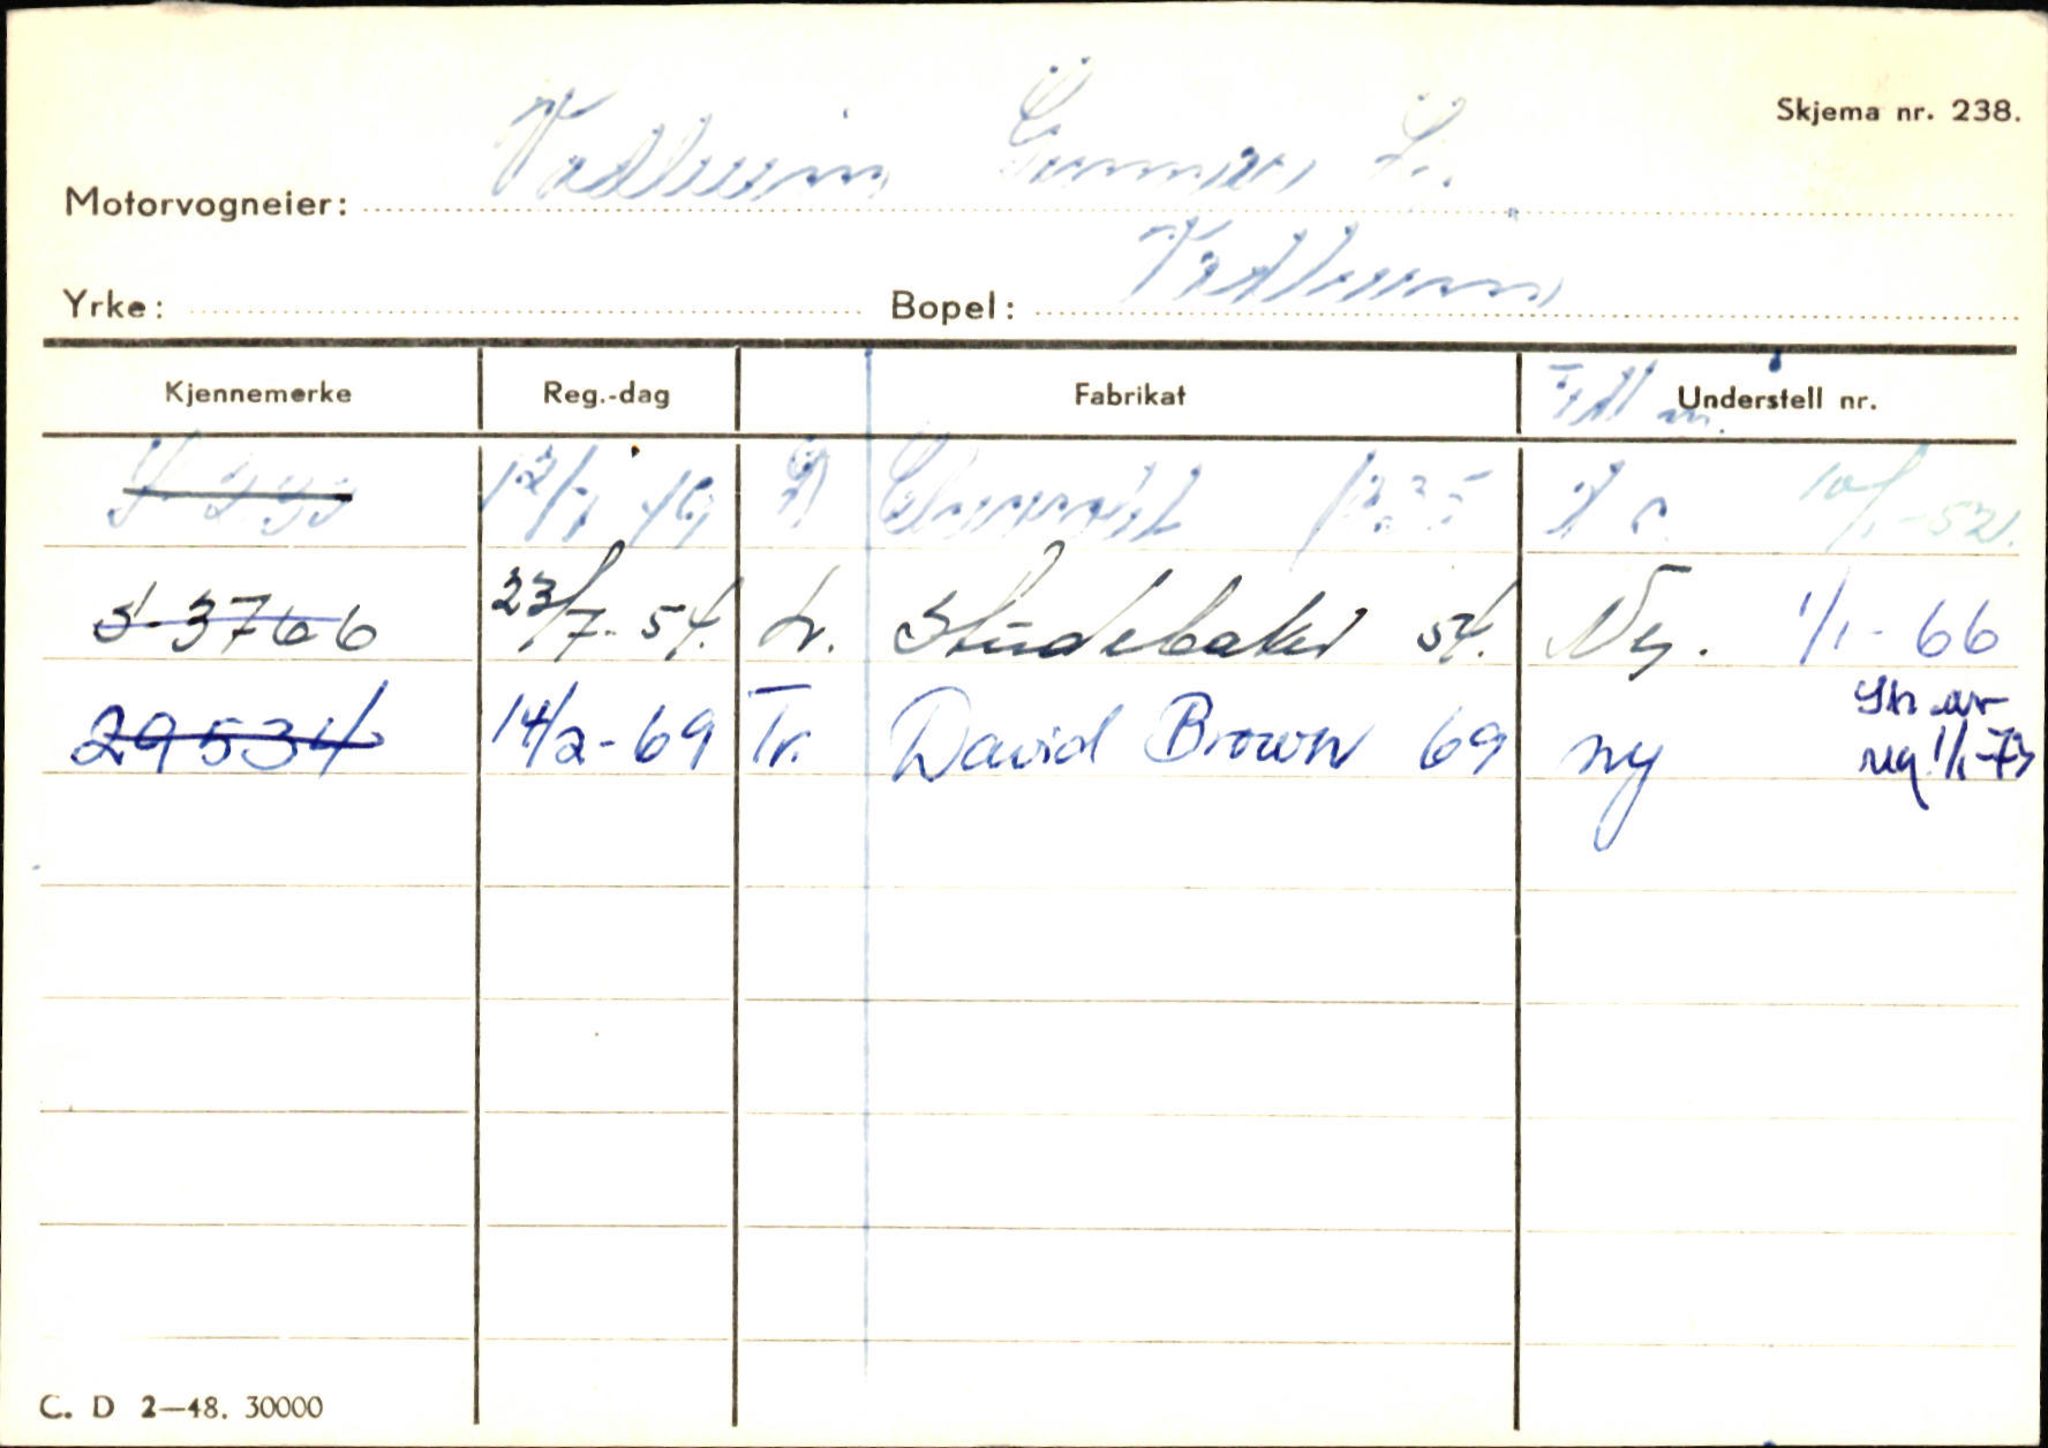 Skjema nr. 238.
Motorvogneier: Vadheim Gunnar
Yrke: Bopel: Vadheim
Kjennemerke Reg.-dag Fabrikat Understell nr.
Chevrolet
S-3766 23/7-54. Studebaker 54. Ny. 1/1-66
29534 14/2-69 Tr. David Brown 69 ny
1/1-73
C. D 2—48. 30000